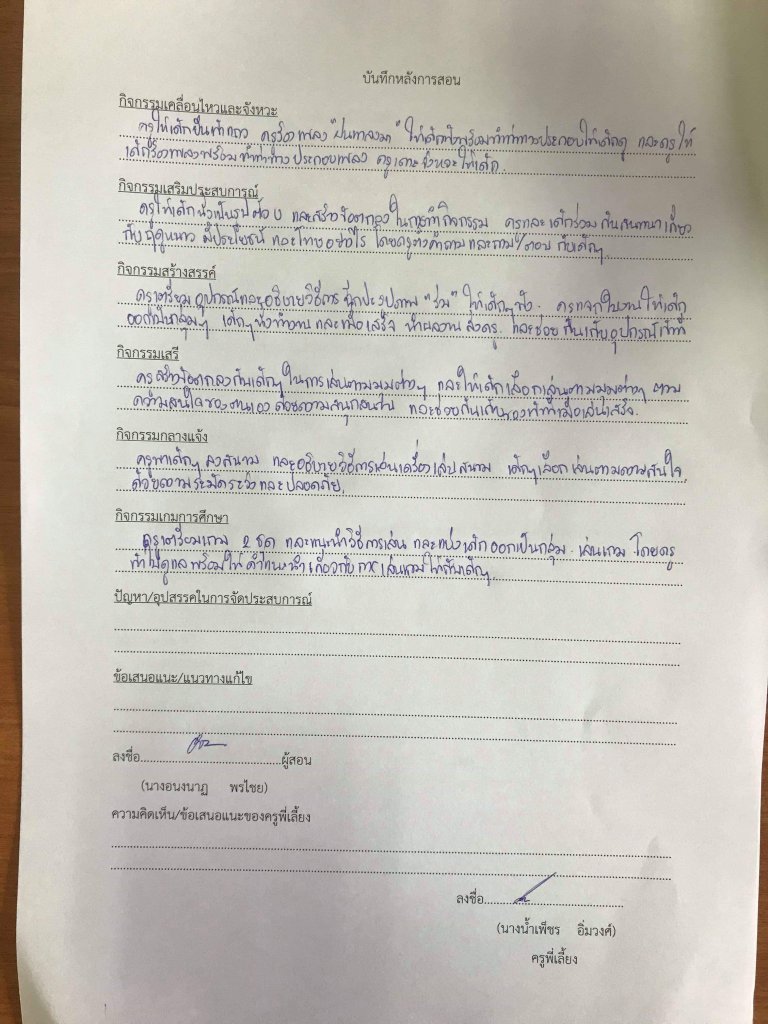 บันทึกหลังการสอน
กิจกรรมเคลื่อนไหวและจังหวะ
ครูให้เด็กยืนเข้าแถว ครูร้องเพลง ให้เด็กฟังพร้อมทำท่าทางประกอบให้เด็กดู และครูให้
เด็กร้องเพลงพร้อมทำท่าทางประกอบเพลง ครูเคาะจังหวะให้เด็ก
กิจกรรมเสริมประสบการณ์
ครูให้เด็กนั่งเป็นรูปตัว U และสร้างข้อตกลงในการทำกิจกรรม ครูและเด็กร่วมกันสนทนาเกี่ยว
กับฤดูหนาว มีประโยชน์ และโทษอย่างไร โดยครูตั้งคำถามและถาม/ตอบ กับเด็กๆ
กิจกรรมสร้างสรรค์
ครูเตรียมอุปกรณ์และอธิบายวิธีการฉีกปะรูปภาพ "ร่ม" ให้เด็กๆฟัง. ครูแจกใบงานให้เด็ก
ออกเป็นกลุ่มๆ เด็กๆ ทำงานและเมื่อเสร็จ นำผลงานส่งครู. และช่วยกันเก็บอุปกรณ์เข้าที่
กิจกรรมเสรี
ครูสร้างข้อตกลงกับเด็กๆ ในการเล่นตามมุมต่างๆ และให้เด็กเลือกเล่นตามมุมต่างๆ ตาม
ความสนใจของตนเองด้วยความสนุกสนาน และช่วยกันเก็บของเข้าที่เมื่อเล่นเสร็จ.
กิจกรรมกลางแจ้ง
ครูพาเด็กๆ ลงสนาม และอธิบายวิธีการเล่นเครื่องเล่นสนาม เด็กๆเลือกเล่นตามความสนใจ
ด้วยความระมัดระวังและปลอดภัย.
กิจกรรมเกมการศึกษา
ครูเตรียมเกม 2 ชุด และแนะนำวิธีการเล่น และแบ่งเด็กออกเป็นกลุ่ม. เล่นเกม โดยครู
เข้าไปดูแลพร้อมให้คำแนะนำเกี่ยวกับการเล่นเกมให้กับเด็กๆ.
ปัญหา/อุปสรรคในการจัดประสบการณ์
ข้อเสนอแนะ/แนวทางแก้ไข
ลงชื่อ..............................ผู้สอน
(นางอนงนาฏ พรไชย)
ความคิดเห็น/ข้อเสนอแนะของครูพี่เลี้ยง
ลงชื่อ..............................
(นางน้ำเพ็ชร อิ่มวงศ์)
ครูพี่เลี้ยง